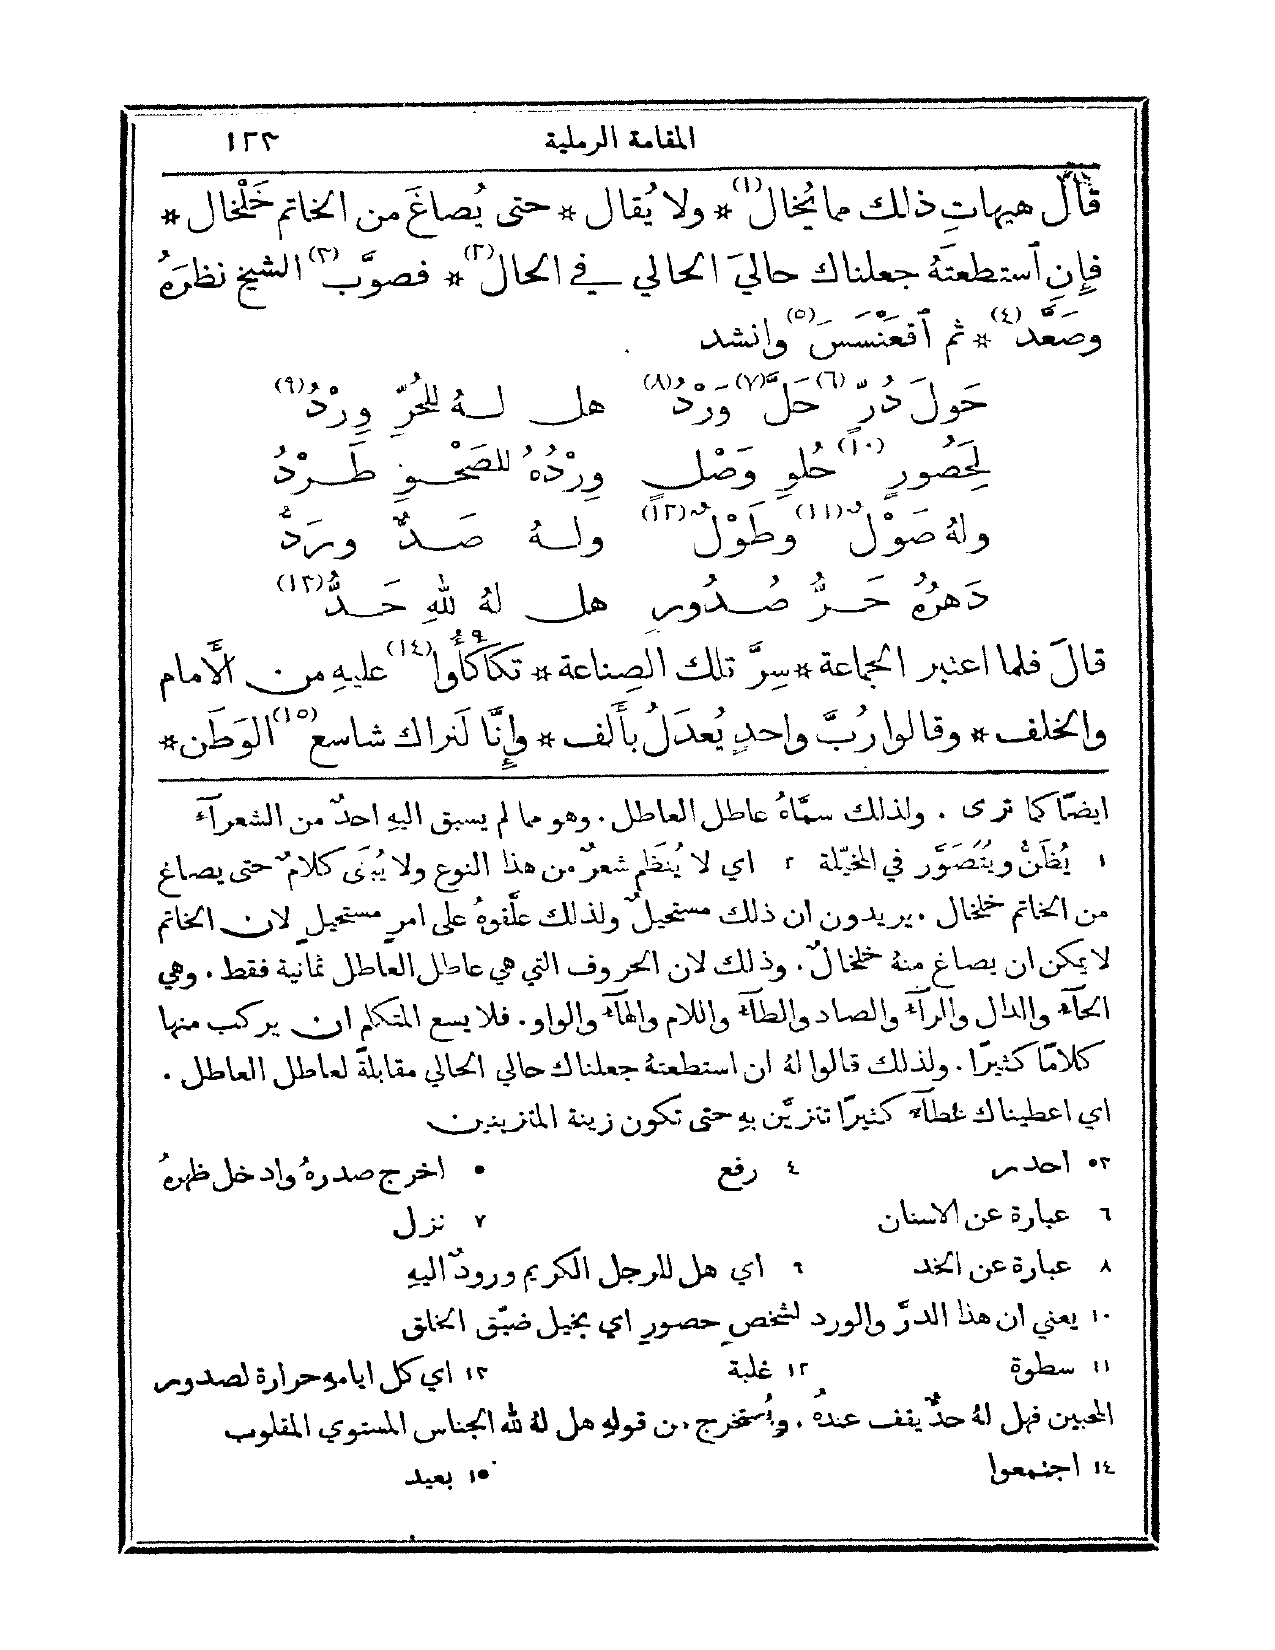 المقامة الرملية ١٢٣
قالَ هيهاتِ ذلك ما يُخال(١) * ولا يُقال * حتى يُصاغَ من الخاتم خَلْخال *
فإِنِ ٱستطعتَهُ جعلناك حاليَ الحالي في الحال(٢) * فصوَّب(٣) الشيخ نظرَهُ
وصَعَّد(٤) * ثم ٱقعَنْسَسَ(٥) وانشد
حَولَ دُرٍّ(٦) حَلَّ(٧) وَرْدُ(٨) هل لهُ للحُرِّ وِرْدُ(٩)
لِحَصُورٍ(١٠) حُلوِ وَصْلٍ وِرْدُهُ للصَحْوِ طَرْدُ
ولهُ صَوْلٌ(١١) وطَوْلٌ(١٢) ولهُ صَدٌّ وردُّ
دَهرُهُ حَرُّ صُدُورٍ هل لهُ لِلهِ حَدُّ(١٣)
قالَ فلما اعتبر الجماعة * سِرَّ تلك الصِناعة * تكأكأُوا(١٤) عليهِ من الأَمام
والخلف * وقالوا رُبَّ واحدٍ يُعدَلُ بأَلف * وإِنَّا لَنراك شاسع(١٥) الوَطَن *
ايضًا كما ترى . ولذلك سمَّاهُ عاطل العاطل . وهو مما لم يسبق اليهِ احدٌ من الشعرآء
١ يُظَنُّ ويُتَصَوَّر في المخيّلة ٢ اي لا يُنظَم شعرٌ من هذا النوع ولا يُبنَى كلامٌ حتى يصاغ
من الخاتم خلخال . يريدون ان ذلك مستحيلٌ ولذلك علَّقوهُ على امرٍ مستحيلٍ لان الخاتم
لا يمكن ان يصاغ منهُ خلخالٌ . وذلك لان الحروف التي هي عاطل العاطل ثمانية فقط . وهي
الحآء والدال والرآء والصاد والطآء واللام والهآء والواو . فلا يسع المتكلم ان يركب منها
كلامًا كثيرًا . ولذلك قالوا لهُ ان استطعتهُ جعلناك حالي الحالي مقابلةً لعاطل العاطل .
اي اعطيناك عطآء كثيرًا تتزيَّن بهِ حتى تكون زينة المتزينين
٣ احدر ٤ رفع ٥ اخرج صدرهُ وادخل ظهرهُ
٦ عبارة عن الاسنان ٧ نزل
٨ عبارة عن الخد ٩ اي هل للرجل الكريم ورودٌ اليهِ
١٠ يعني ان هذا الدرَّ والورد لشخصٍ حصورٍ اي بخيل ضيّق الخلق
١١ سطوة ١٢ غلبة ١٣ اي كل ايامهِ حرارة لصدور
المحبين فهل لهُ حدٌّ يقف عندهُ . ويُستخرج من قولهِ هل لهُ لله الجناس المستوي المقلوب
١٤ اجتمعوا ١٥ بعيد